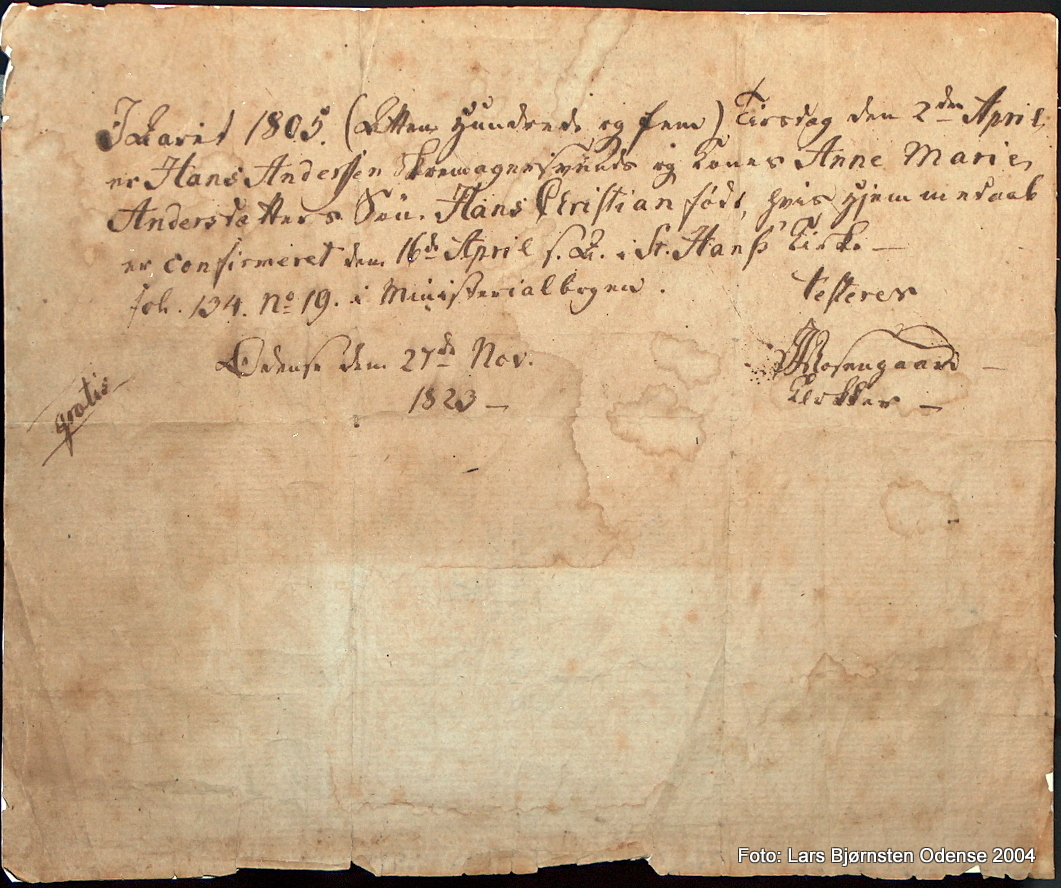 I Aaret 1805. (Atten Hundrede og fem) Tirsdag den 2den April
er Hans Andersen Skomagersvends og Kones Anne Marie
Andersdatters Søn, Hans Christian født, hvis Hjemmedaab
er confirmeret den 16de April s. A. i St. Hans' Kirke —
fol. 134. No 19. i Ministerialbogen.
testeres
Odense den 27de Nov.
1823 —
Rosengaard —
Klokker —
gratis
Foto: Lars Bjørnsten Odense 2004